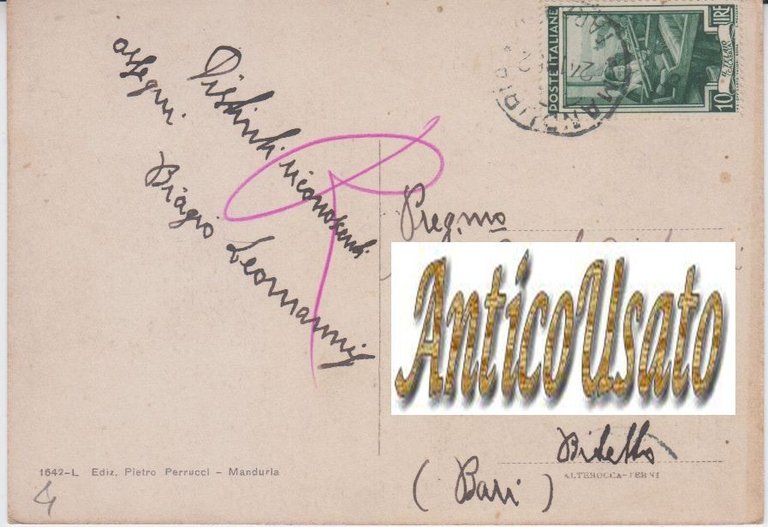 POSTE ITALIANE
LIRE
10
MANDURIA
Distinti riconoscenti
ossequi
Biagio Leomanni
Preg.mo
AnticoUsato
Bitetto
(Bari)
1642-L Ediz. Pietro Perrucci - Manduria
ALTEROCCA-TERNI
4